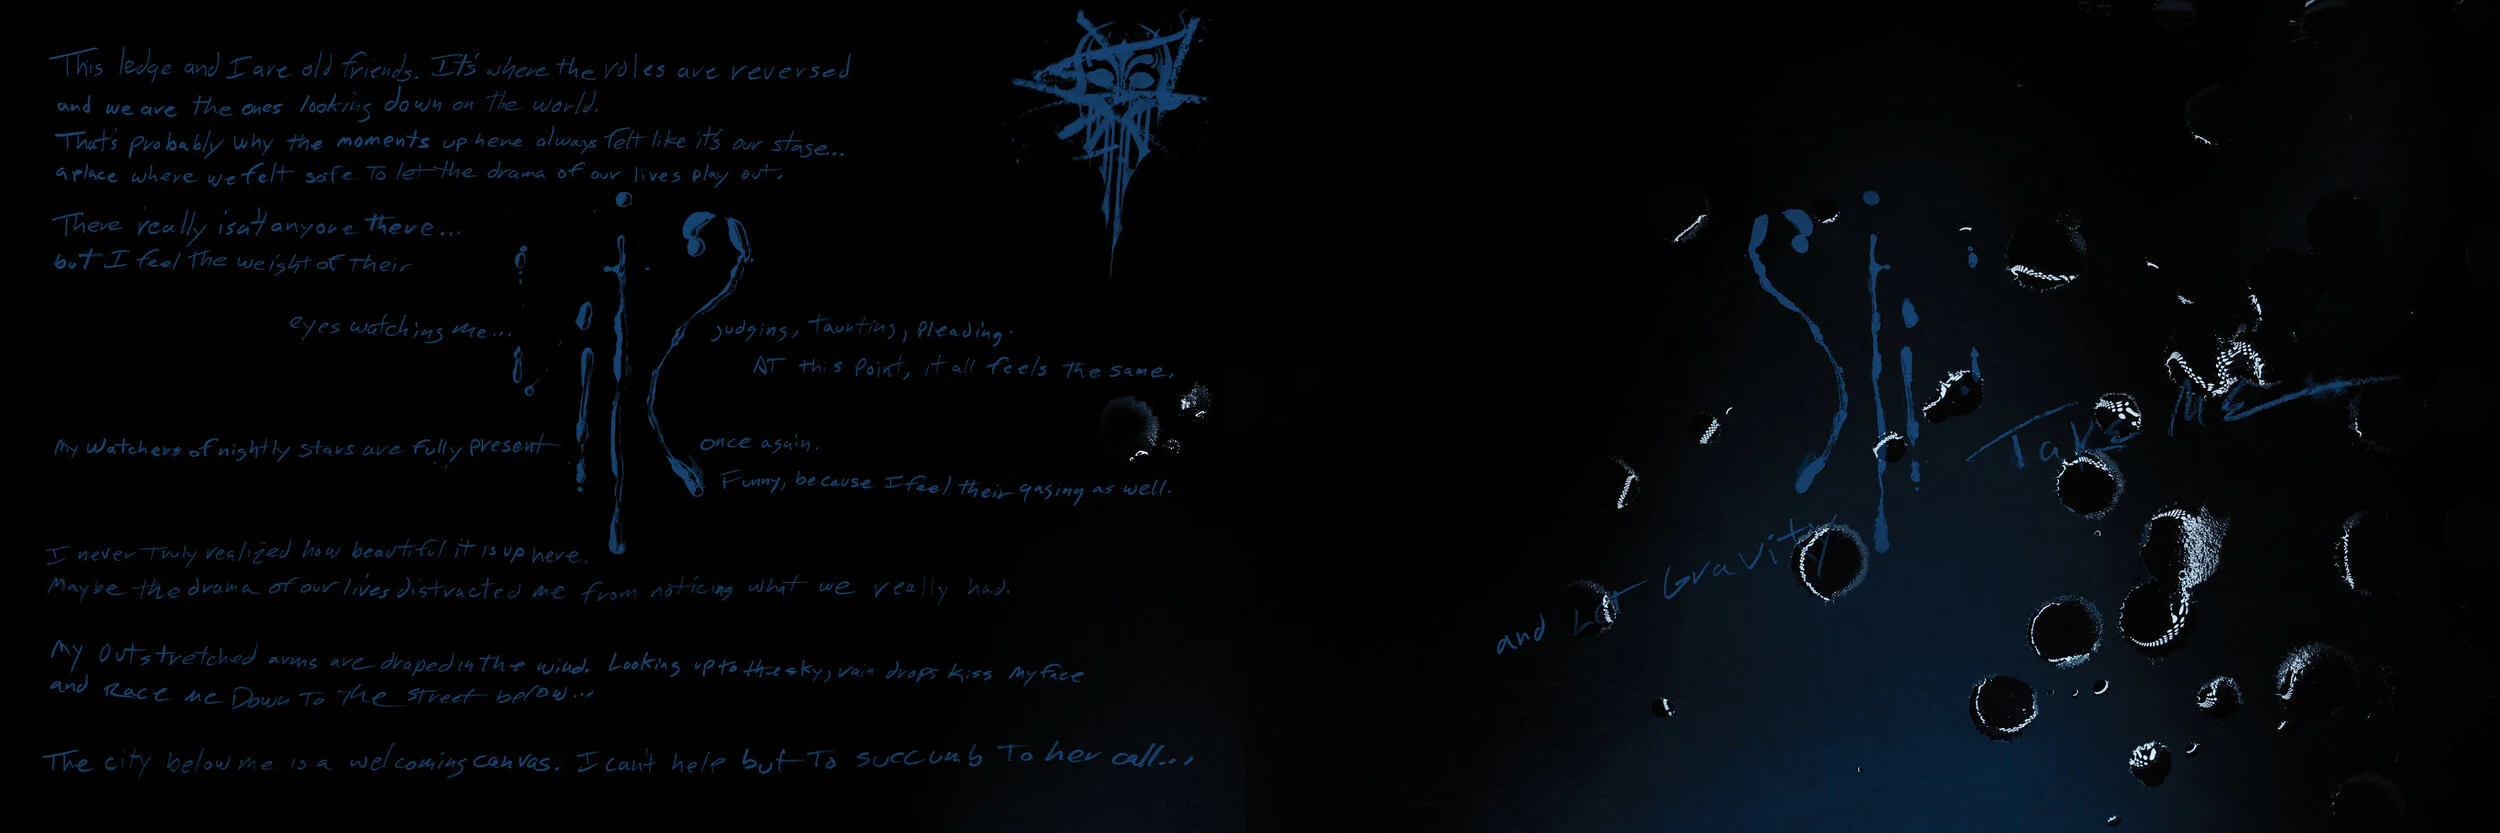 This ledge and I are old friends. It's where the roles are reversed
and we are the ones looking down on the world.
That's probably why the moments up here always felt like it's our stage...
a place where we felt safe to let the drama of our lives play out.
There really isn't anyone there...
but I feel the weight of their
eyes watching me...
judging, taunting, pleading.
AT this point, it all feels the same.
My watchers of nightly stars are fully present
once again.
Funny, because I feel their gazing as well.
I never truly realized how beautiful it is up here.
Maybe the drama of our lives distracted me from noticing what we really had.
My outstretched arms are draped in the wind. Looking up to the sky, rain drops kiss my face
and Race me Down To The street below...
The city below me is a welcoming canvas. I can't help but To succumb To her call...
and LeT Gravity
Take ME